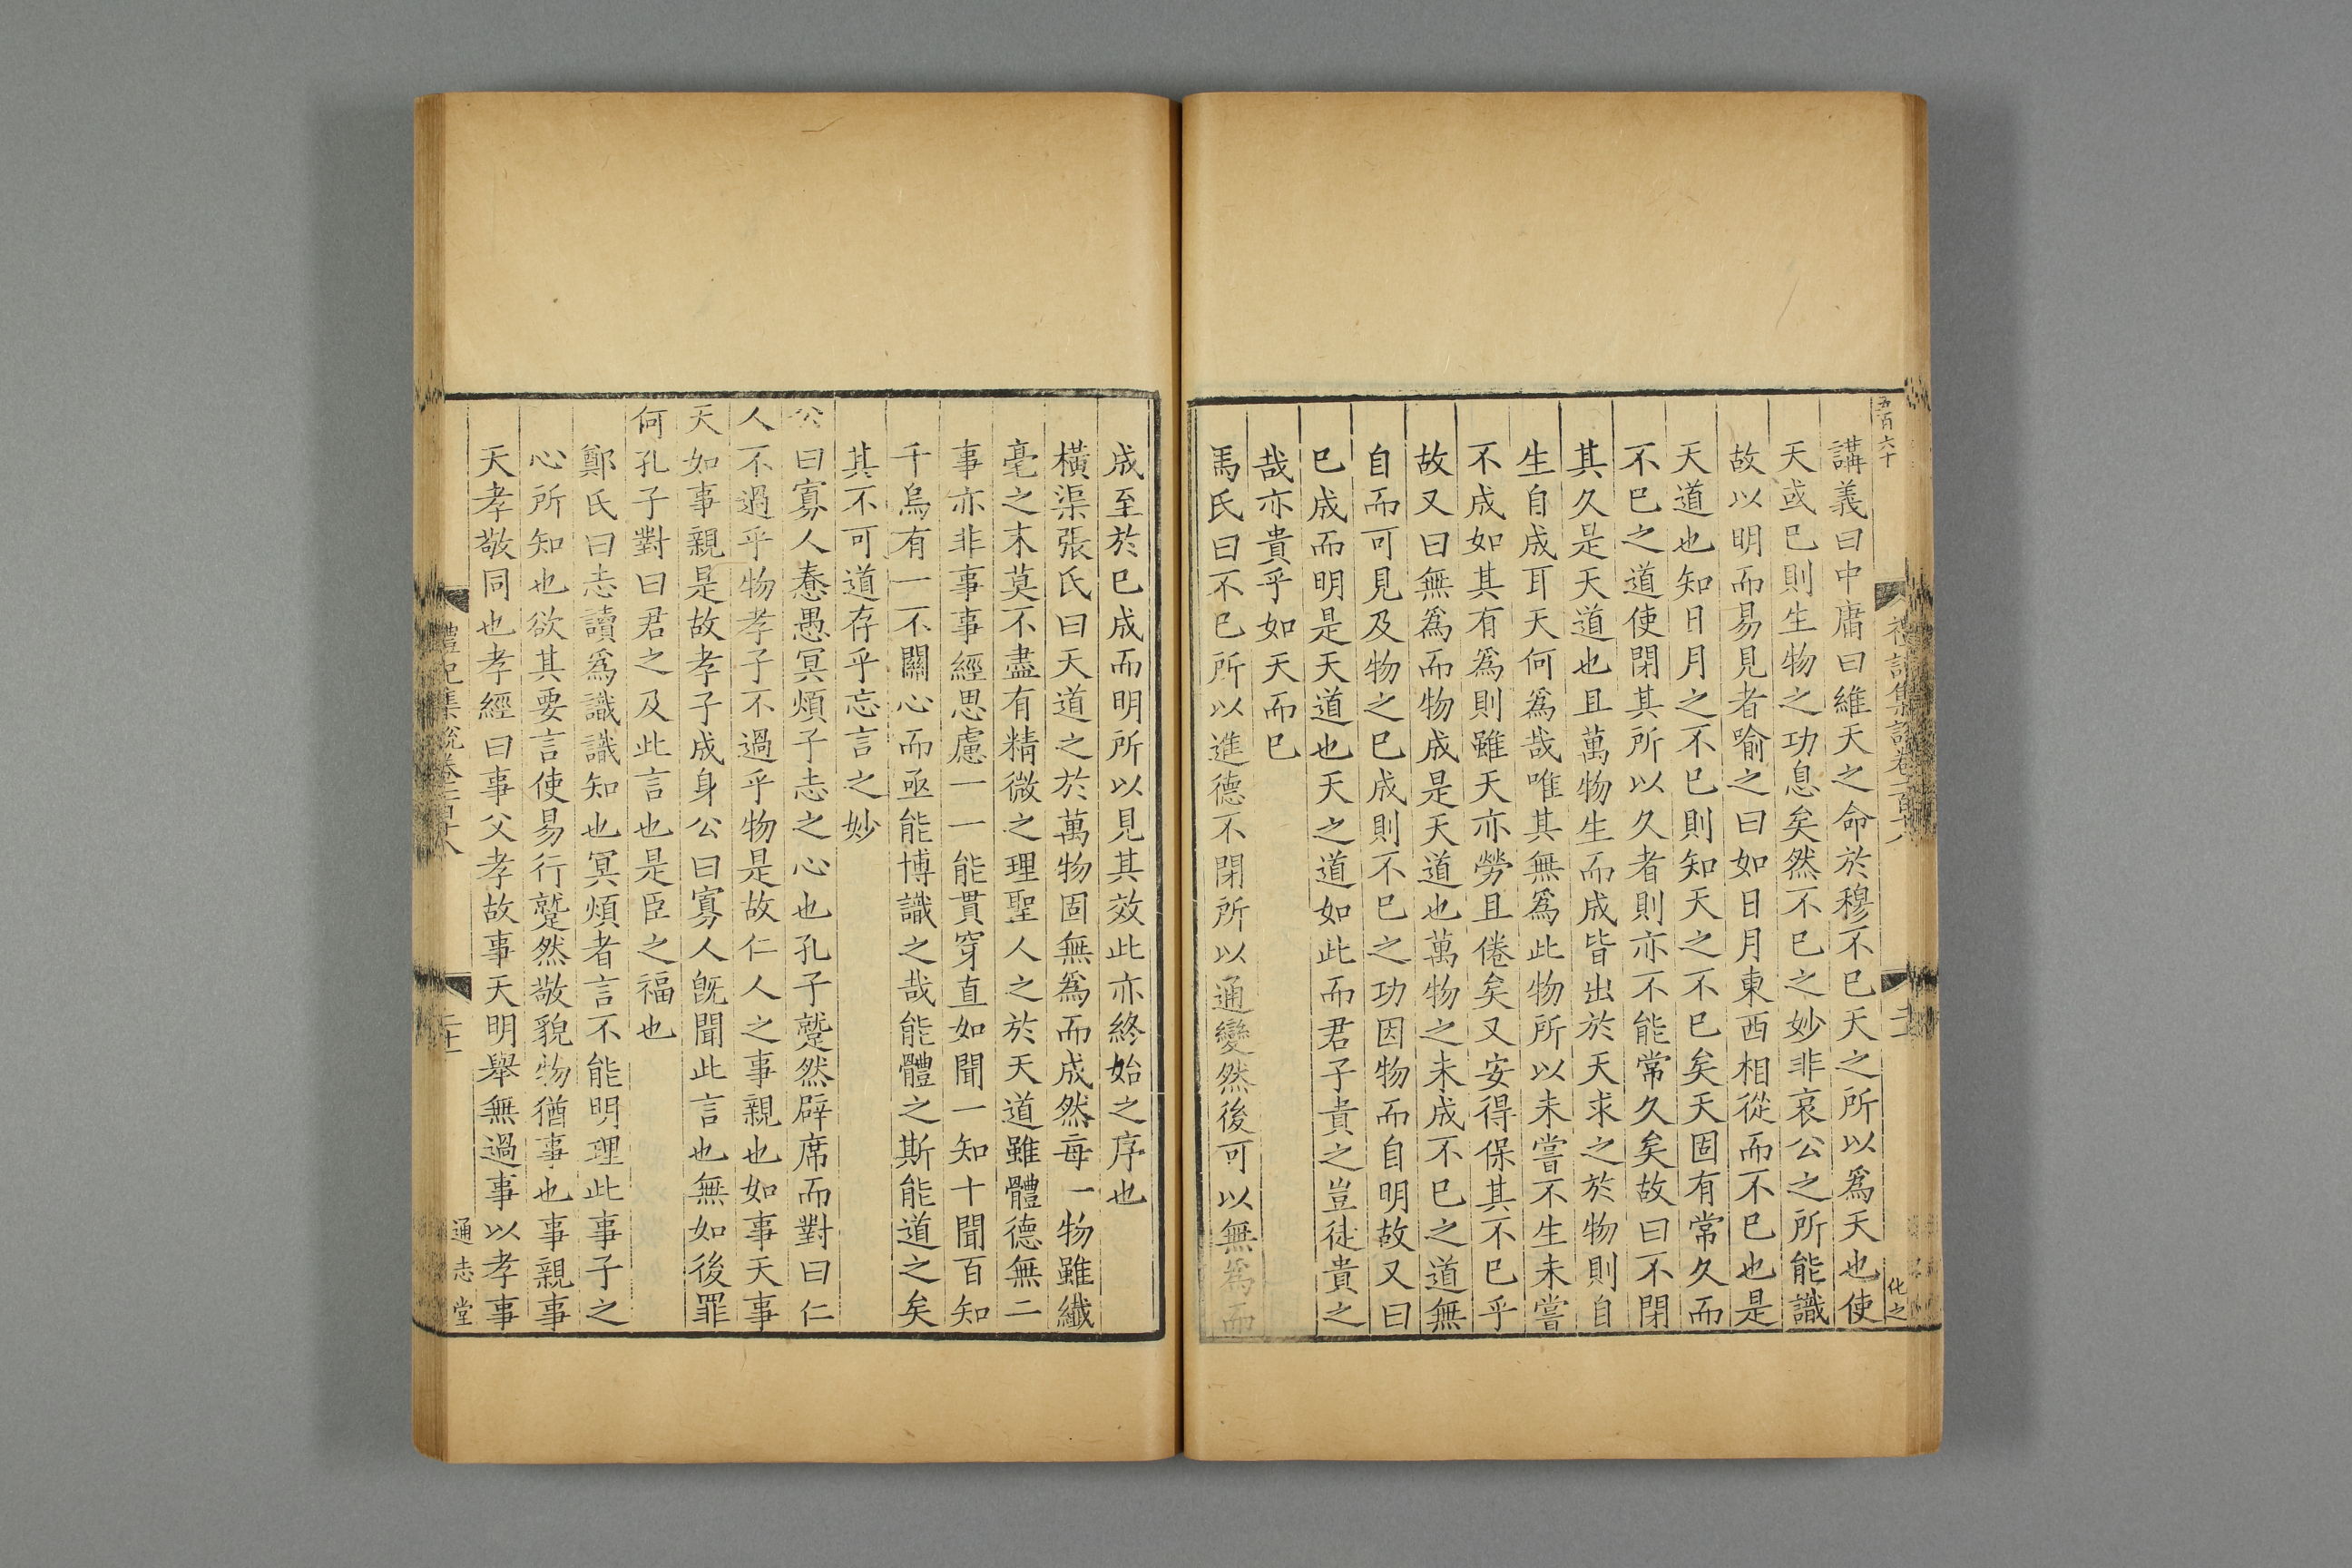 五百六十
講義曰中庸曰維天之命於穆不已天之所以爲天也使
天或已則生物之功息矣然不已之妙非哀公之所能識
故以明而易見者喻之曰如日月東西相從而不已也是
天道也知日月之不已則知天之不已矣天固有常久而
不已之道使閉其所以久者則亦不能常久矣故曰不閉
其久是天道也且萬物生而成皆出於天求之於物則自
生自成耳天何爲哉唯其無爲此物所以未嘗不生未嘗
不成如其有爲則雖天亦勞且倦矣又安得保其不已乎
故又曰無爲而物成是天道也萬物之未成不已之道無
自而可見及物之已成則不已之功因物而自明故又曰
已成而明是天道也天之道如此而君子貴之豈徒貴之
哉亦貴乎如天而已
馬氏曰不已所以進德不閉所以通變然後可以無為而
成至於已成而明所以見其效此亦終始之序也
橫渠張氏曰天道之於萬物固無爲而成然每一物雖纎
毫之末莫不盡有精微之理聖人之於天道雖體德無二
事亦非事事經思慮一一能貫穿直如聞一知十聞百知
千烏有一不關心而亟能博識之哉能體之斯能道之矣
其不可道存乎忘言之妙
公曰寡人惷愚冥煩子志之心也孔子蹵然辟席而對曰仁
人不過乎物孝子不過乎物是故仁人之事親也如事天事
天如事親是故孝子成身公曰寡人旣聞此言也無如後罪
何孔子對曰君之及此言也是臣之福也
鄭氏曰志讀爲識識知也冥煩者言不能明理此事子之
心所知也欲其要言使易行蹵然敬貌物猶事也事親事
天孝敬同也孝經曰事父孝故事天明舉無過事以孝事
禮記集說卷
通志堂